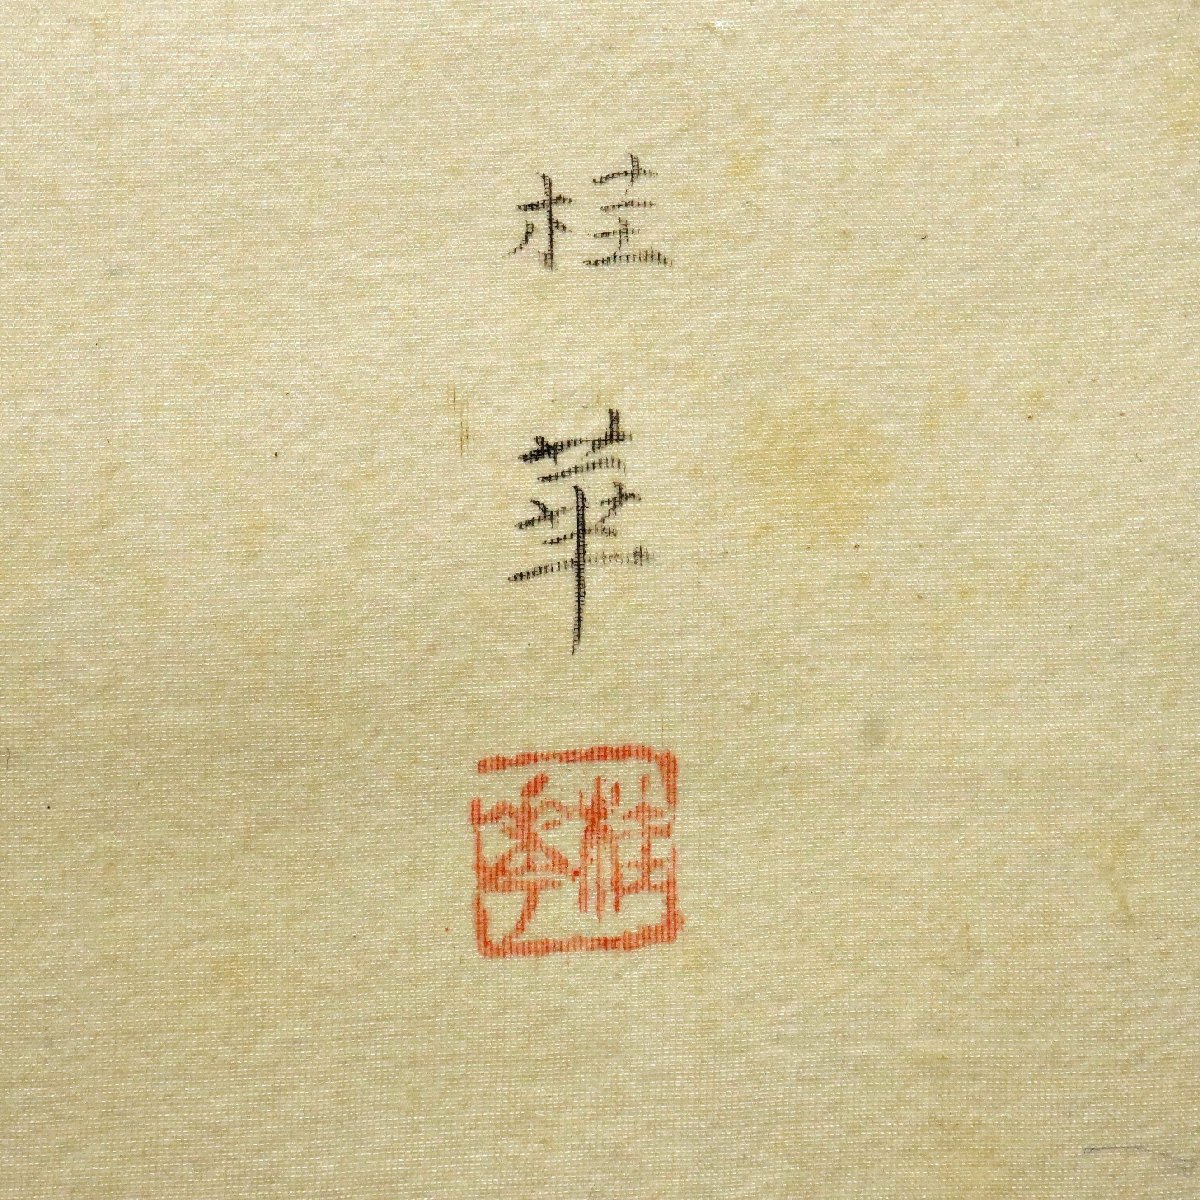 桂
華
桂華